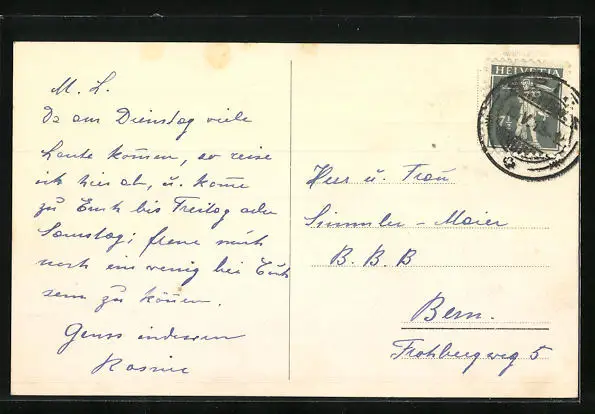 M. L.
Da am Dienstag viele
Leute kommen, so reise
ich hier ab, u. komme
zu Euch bis Freitag oder
Samstag; freue mich
noch ein wenig bei Euch
sein zu können.
Gruss indessen
Rosine
HELVETIA
7½
Herr u. Frau
Simmler - Maier
B. B. B
Bern.
Frohbergweg 5